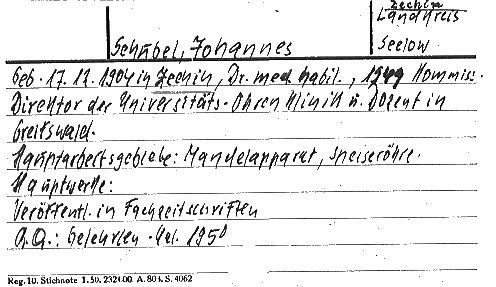 Zechin
Landkreis
Schübel, Johannes
Seelow.
Geb. 17.12.1904 in Zechin, Dr. med. habil., 1949 Kommiss.
Direktor der Universitäts-Ohrenklinik u. Dozent in
Greifswald.
Hauptarbeitsgebiete: Mandelapparat, Speiseröhre.
Hauptwerke:
Veröffentl. in Fachzeitschriften
a.a.: Gelehrten-Kal. 1950
Reg. 10. Stichnote 1. 50. 2324.00. A. 803. S. 4062